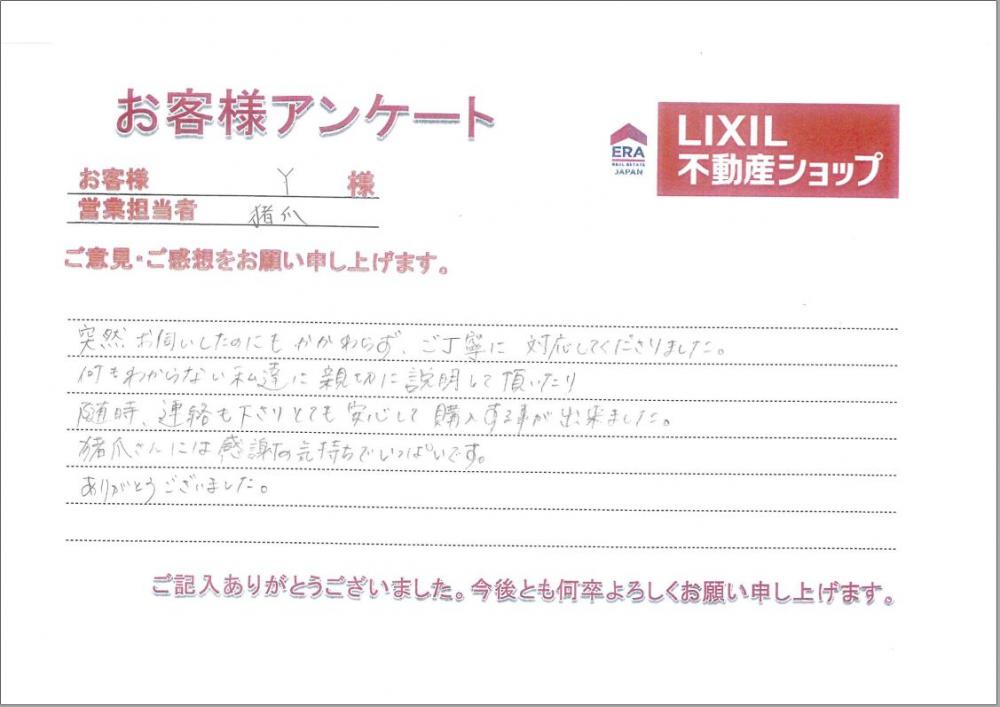 お客様アンケート
ERA
REAL ESTATE
JAPAN
LIXIL
不動産ショップ
お客様 Y 様
営業担当者 猪爪
ご意見・ご感想をお願い申し上げます。
突然お伺いしたのにもかかわらず、ご丁寧に対応してくださりました。
何もわからない私達に親切に説明して頂いたり
随時、連絡も下さりとても安心して購入する事が出来ました。
猪爪さんには感謝の気持ちでいっぱいです。
ありがとうございました。
ご記入ありがとうございました。今後とも何卒よろしくお願い申し上げます。